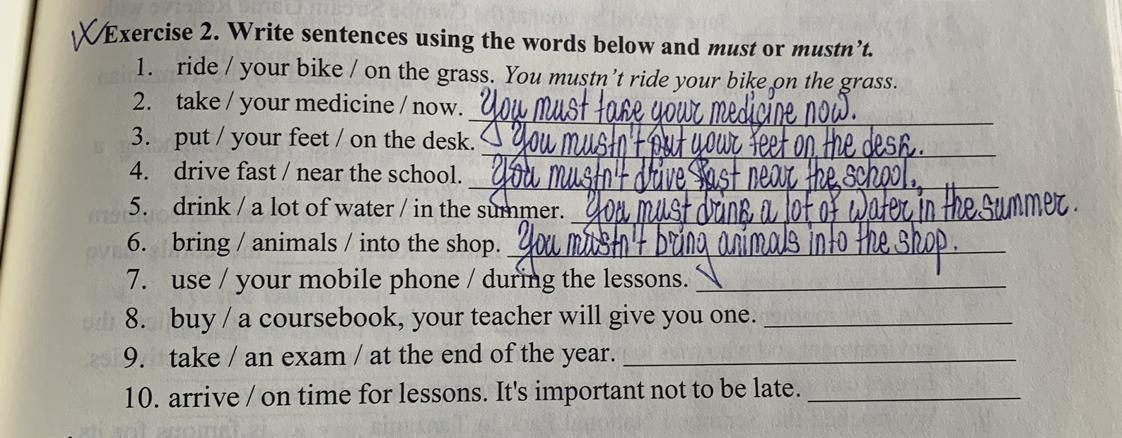 Exercise 2. Write sentences using the words below and must or mustn't.
1. ride / your bike / on the grass. You mustn't ride your bike on the grass.
2. take / your medicine / now. You must take your medicine now.
3. put / your feet / on the desk. You mustn't put your feet on the desk.
4. drive fast / near the school. You mustn't drive fast near the school.
5. drink / a lot of water / in the summer. You must drink a lot of water in the summer.
6. bring / animals / into the shop. You mustn't bring animals into the shop.
7. use / your mobile phone / during the lessons.
8. buy / a coursebook, your teacher will give you one.
9. take / an exam / at the end of the year.
10. arrive / on time for lessons. It's important not to be late.